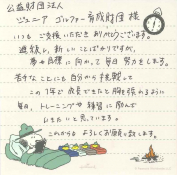 公益財団法人
ジュニア ゴルファー育成財団 様
いつも ご支援いただき ありがとうございます。
進級し、新しいことばかりですが、
夢や目標に 向かって、毎日 努力をします。
苦手なことにも 自分から 挑戦して
この1年で 成長できたと 胸を張れるように
毎日、トレーニングや 練習に 励んで
いきたいと 思っています。
これからも よろしくお願い致します。